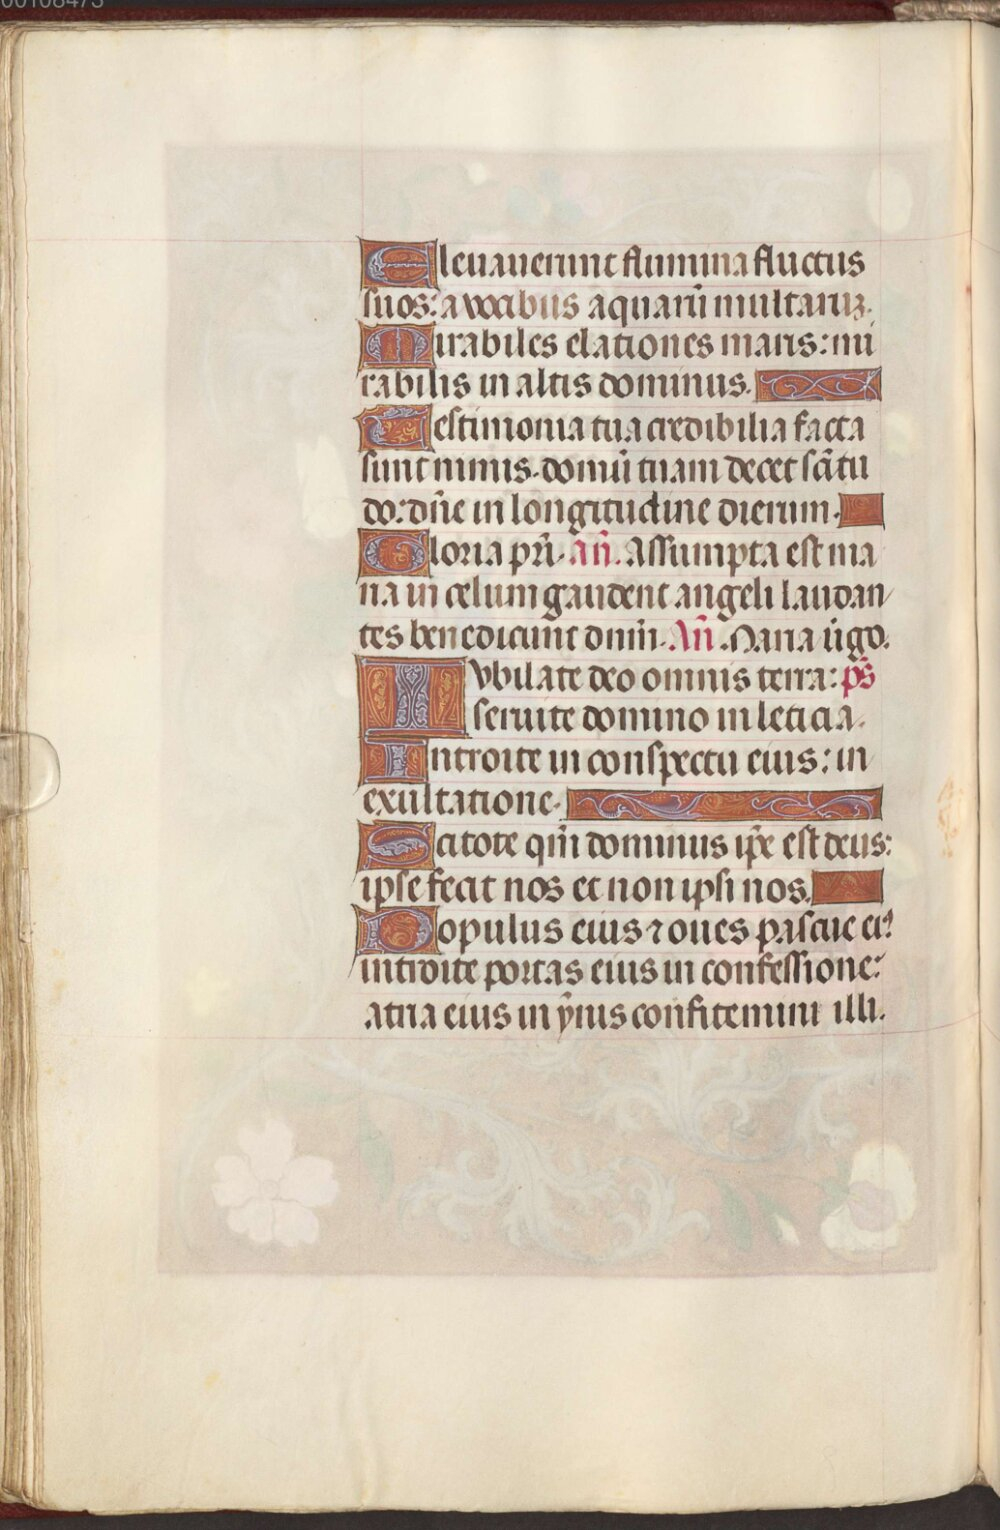 Eleuauerunt flumina fluctus
suos: a vocibus aquarū multarūꝫ.
Mirabiles elationes maris: mi
rabilis in altis dominus.
Testimonia tua credibilia facta
sunt nimis. domū tuam decet sc̄itu
do: dn̄e in longitudine dierum.
Gloria pr̄i. an̄. Assumpta est ma
ria in celum gaudent angeli laudan
tes benedicunt dnm̄. An̄. Maria ūgo.
Ivbilate deo omnis terra: ps̄
seruite domino in leticia.
Introite in conspectu eius: in
exultatione.
Scitote qm̄ dominus ip̄e est deus:
ipse fecit nos et non ipsi nos.
Populus eius ⁊ oues pascue ei᷒:
introite portas eius in confessione:
atria eius in ȳnis confitemini illi.